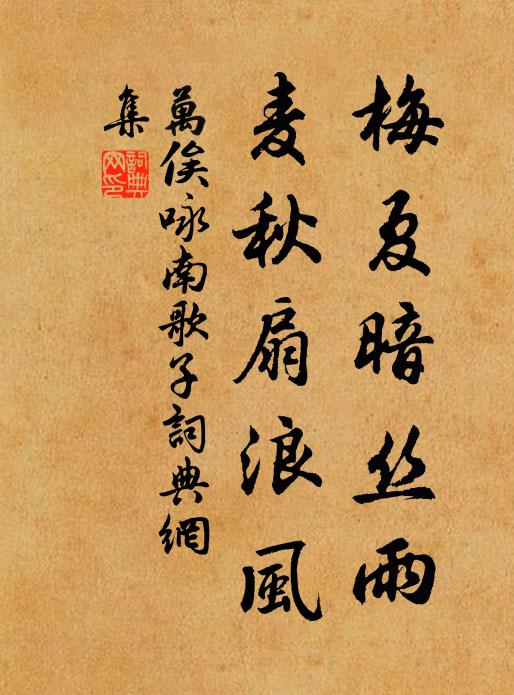 梅夏暗丝雨
麦秋扇浪風
萬俟咏南歌子詞典網
集
詞典
网印